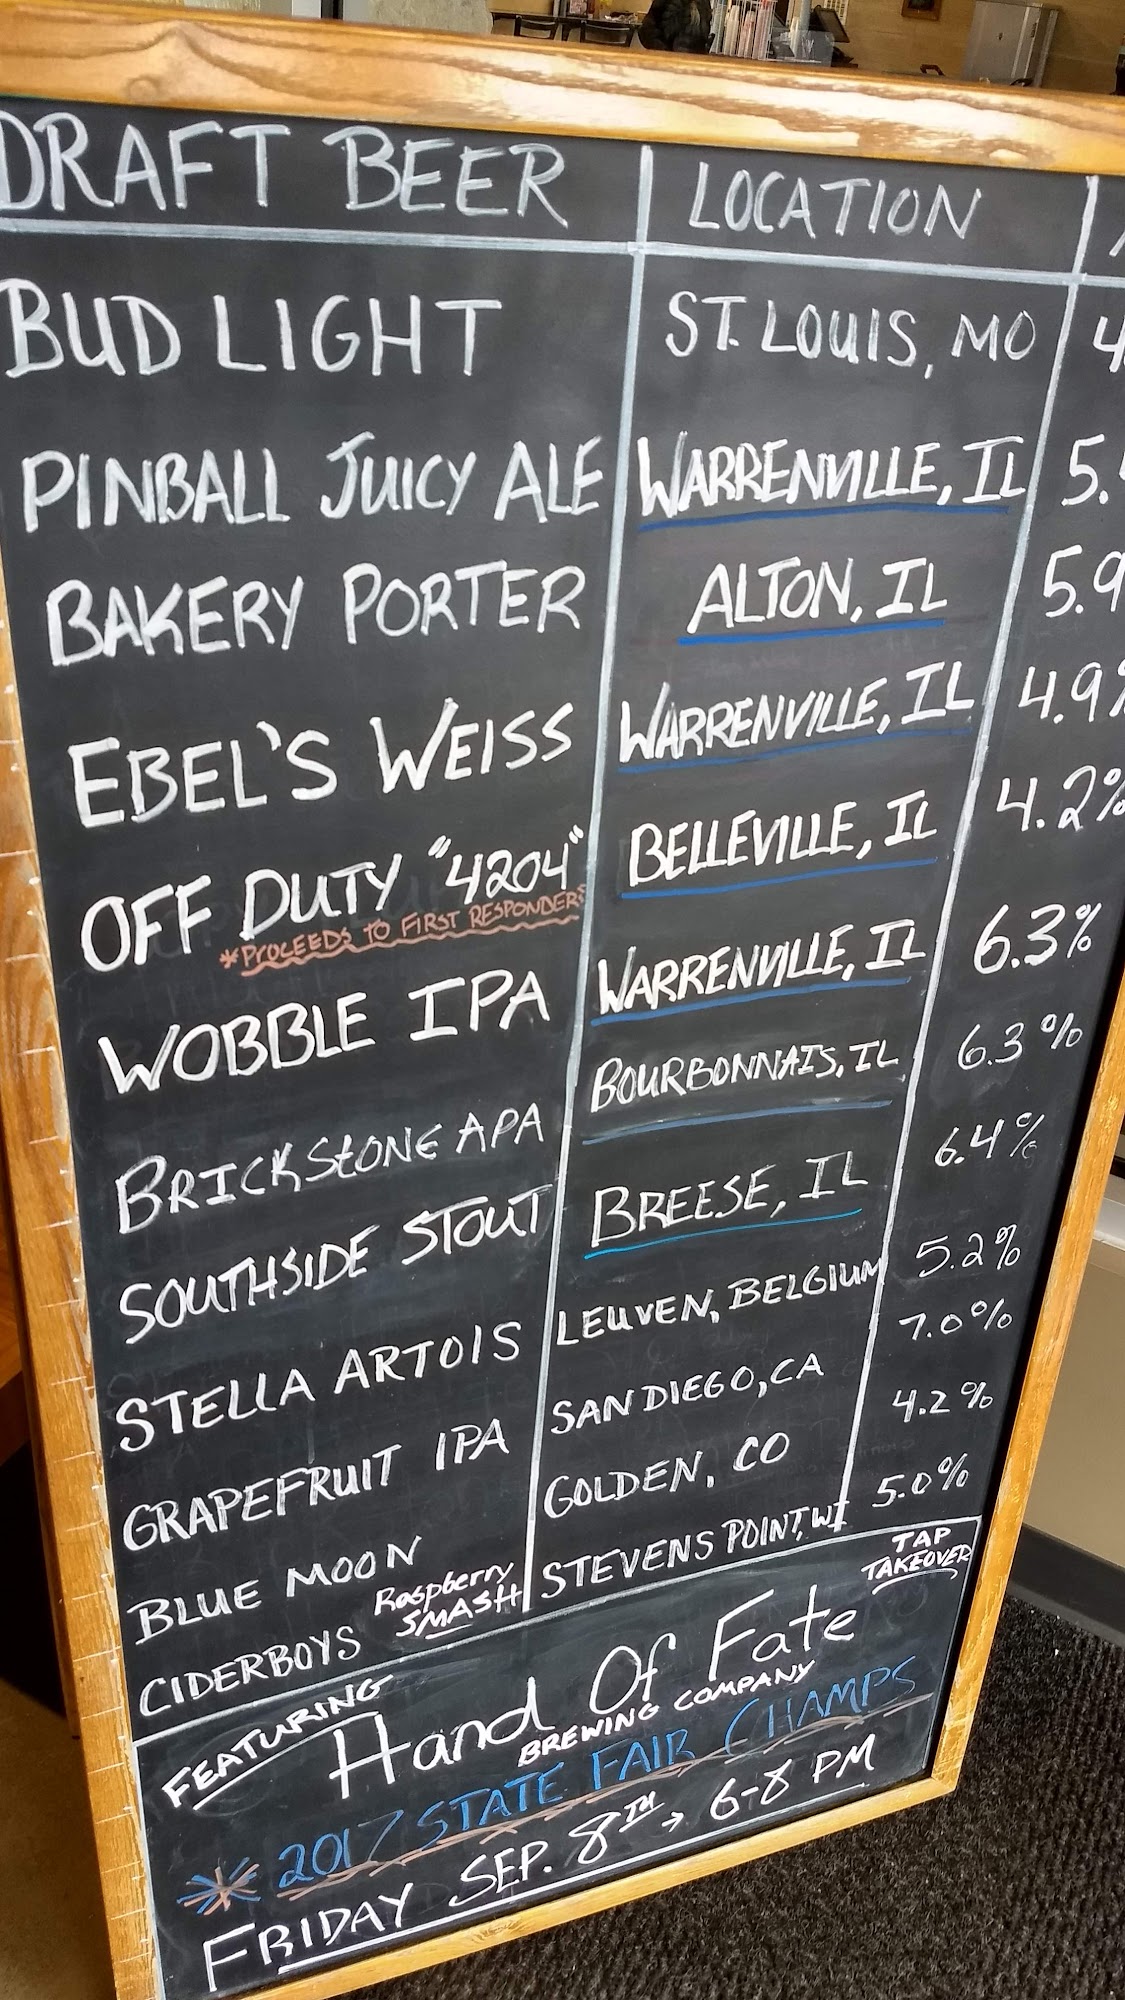 DRAFT BEER LOCATION
BUD LIGHT ST. LOUIS, MO 4
PINBALL JUICY ALE WARRENVILLE, IL 5.
BAKERY PORTER ALTON, IL 5.9
EBEL'S WEISS WARRENVILLE, IL 4.9%
OFF DUTY "4204" BELLEVILLE, IL 4.2%
*PROCEEDS TO FIRST RESPONDERS
WOBBLE IPA WARRENVILLE, IL 6.3%
BRICKSTONE APA BOURBONNAIS, IL 6.3%
SOUTHSIDE STOUT BREESE, IL 6.4%
STELLA ARTOIS LEUVEN, BELGIUM 5.2%
GRAPEFRUIT IPA SAN DIEGO, CA 7.0%
BLUE MOON GOLDEN, CO 4.2%
CIDERBOYS Raspberry SMASH STEVENS POINT, WI 5.0%
TAP
TAKEOVER
FEATURING
Hand Of Fate
BREWING COMPANY
* 2017 STATE FAIR CHAMPS
FRIDAY SEP. 8TH → 6-8 PM